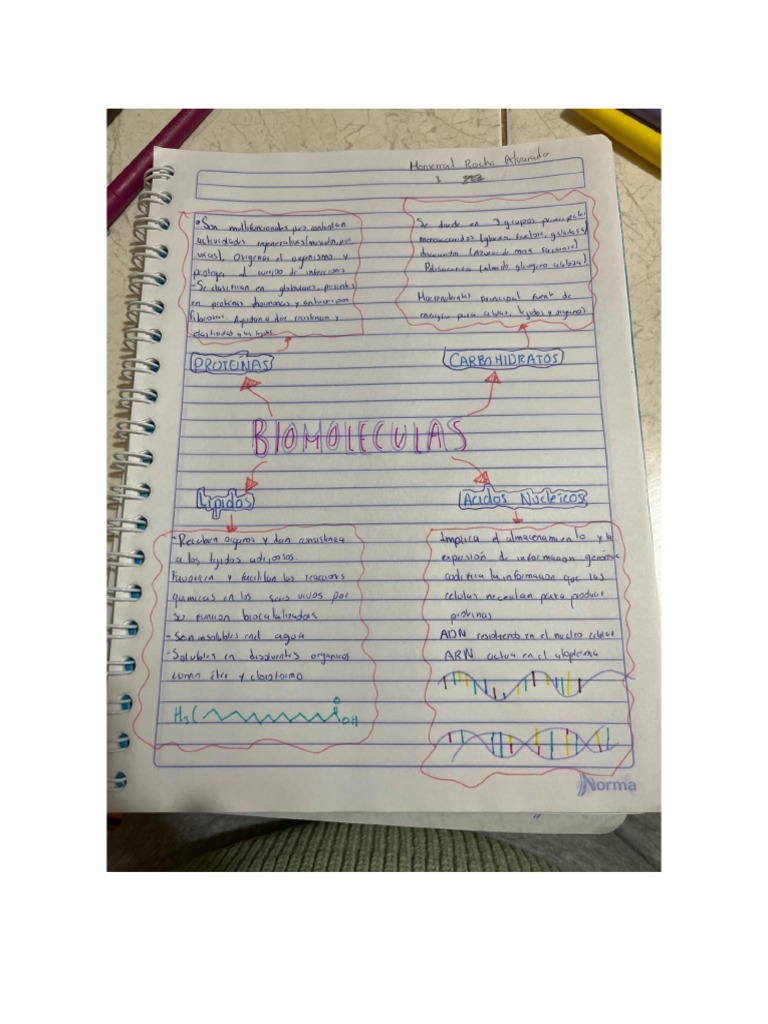 Rocha Alvarado
3
• Son multifuncionales pues controlan
actividades
Organizan el organismo y
protegen al cuerpo de infecciones
- Se clasifican en globulares, presentes
en proteinas
fibrosas. Ayudan a dar consistencia y
elasticidad a los tejidos
Se divide en 3 grupos principales
monosacaridos (glucosa, fructosa, galactosa)
Polisacaridos (almidon glucogeno celulosa)
Macronutrientes principal fuente de
energia para celulas, tejidos y organos
PROTEÍNAS
CARBOHIDRATOS
BIOMOLECULAS
Lípidos
Ácidos Nucleicos
- Recubren organos y dan consistencia
a los tejidos adiposos.
Favorecen y facilitan las reacciones
quimicas en los seres vivos por
su funcion biocatalizadora
- Son insolubles en el agua
- Solubles en disolventes organicos
como éter y cloroformo
H₃C
O
OH
Implica el almacenamiento y la
expresión de informacion genetica
codifica la informacion que las
celulas necesitan para producir
proteinas
ADN en el nucleo celular
ARN actua en el
Norma